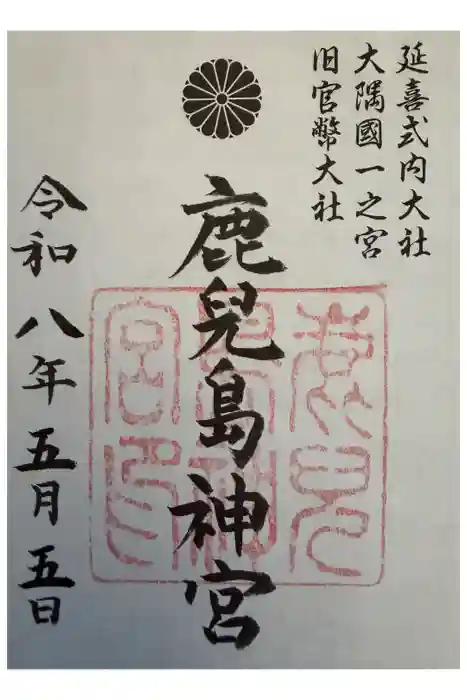 延喜式内大社
大隅國一之宮
旧官幣大社
鹿兒島神宮
令和八年五月五日
鹿兒島神宮印